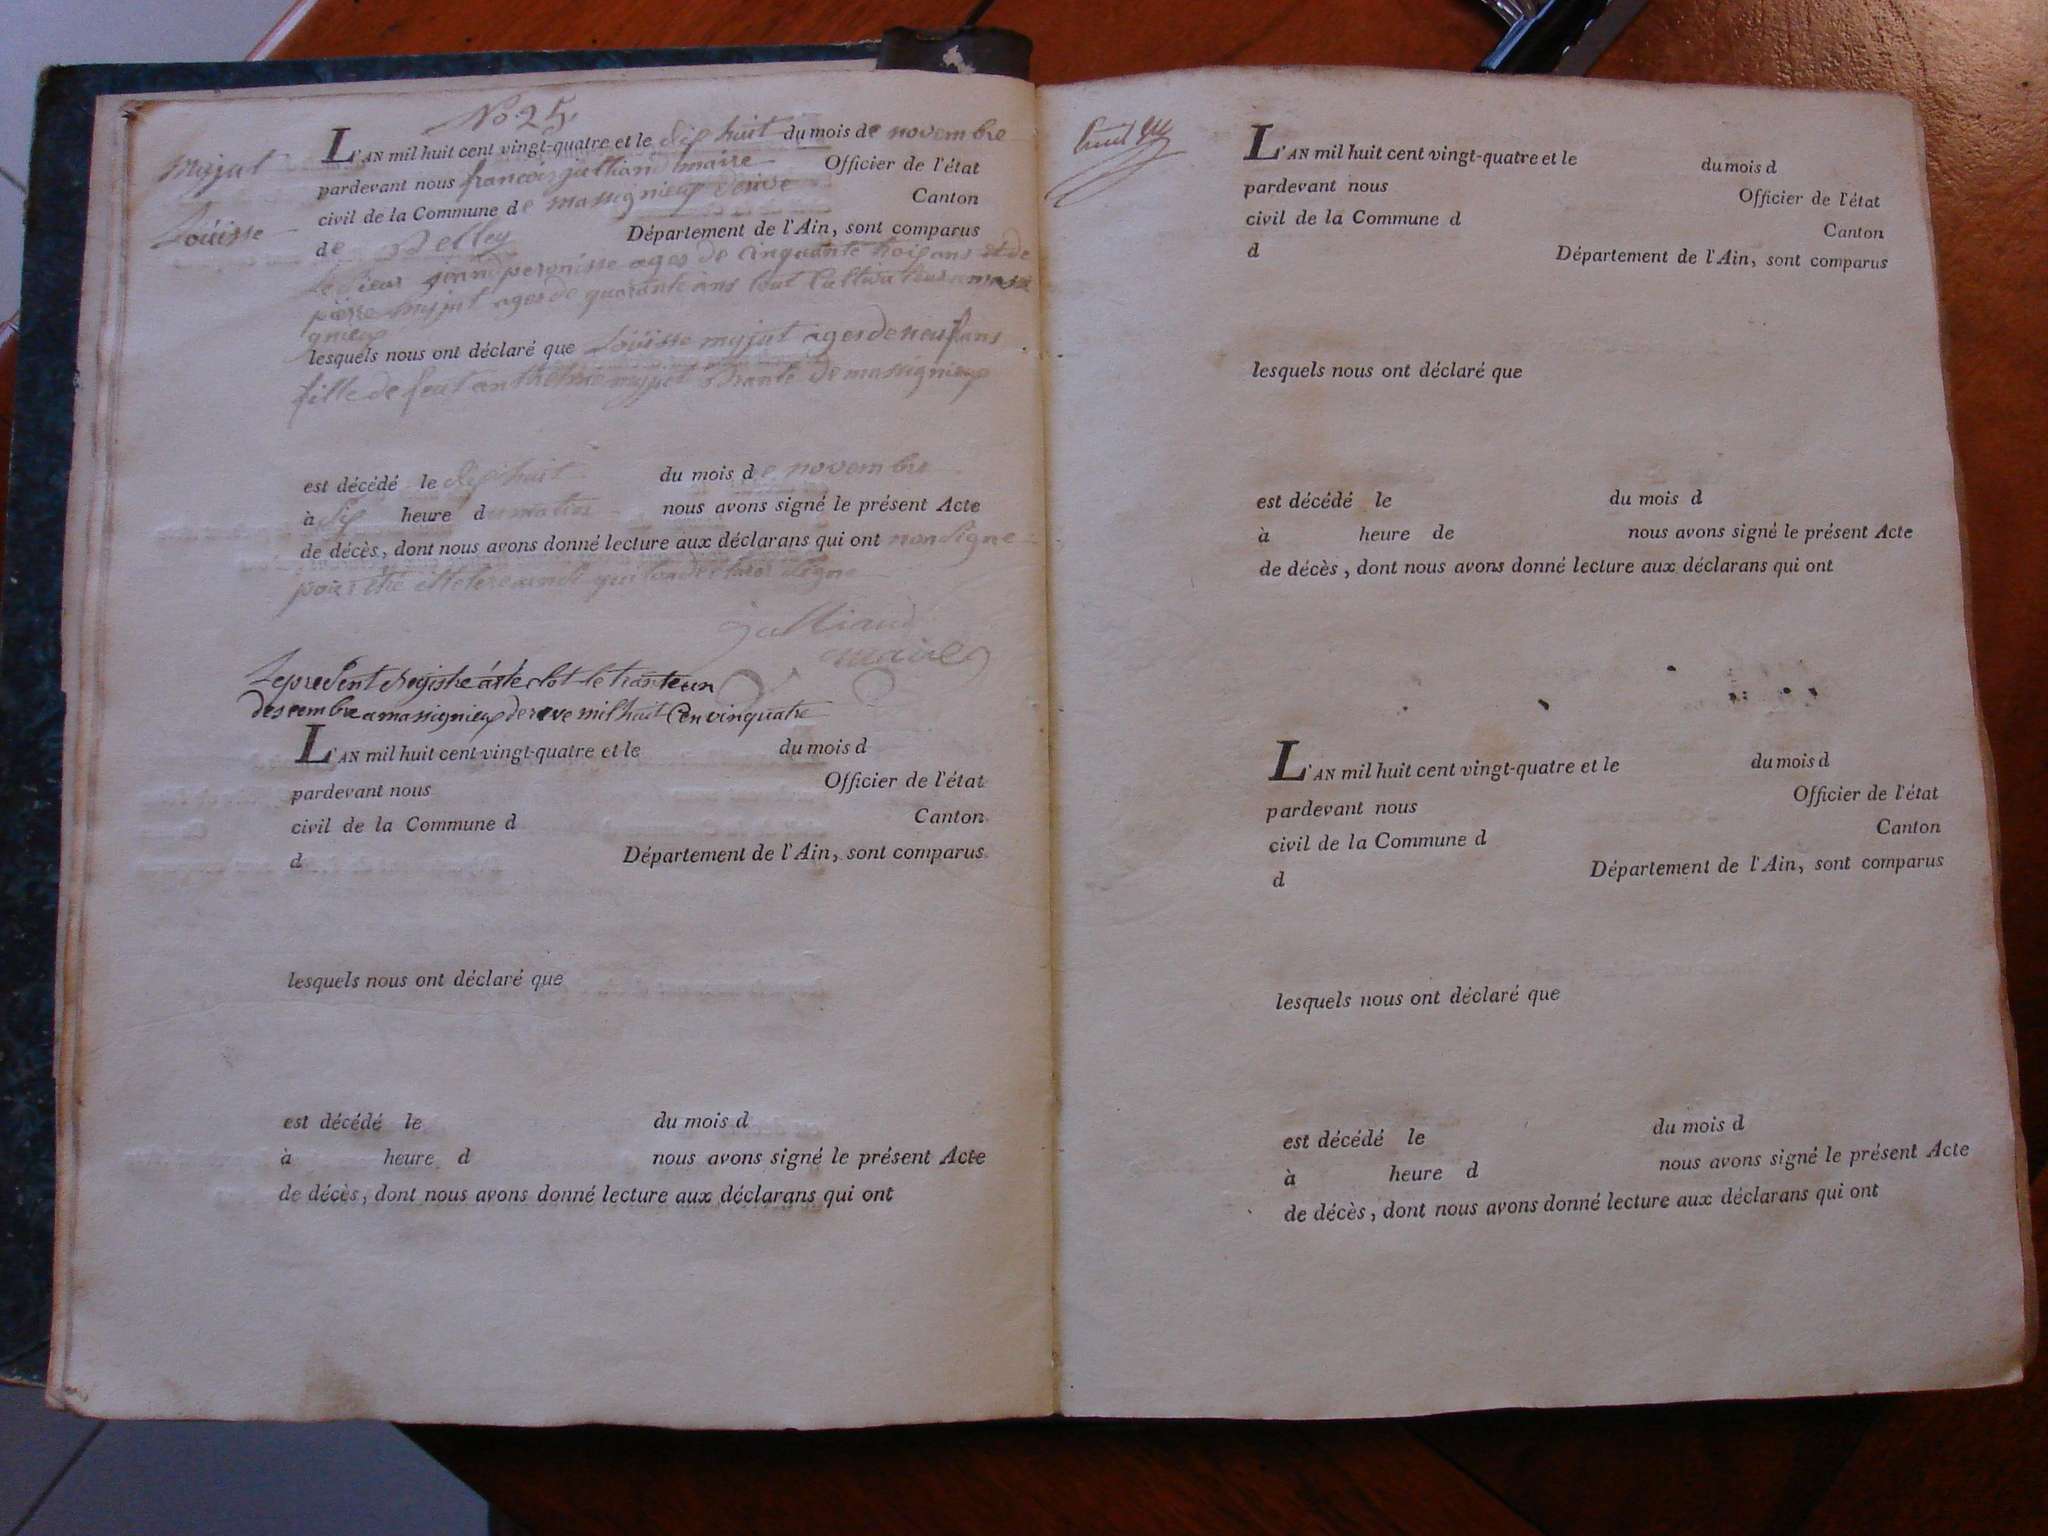 No 25
Myjat
Louisse
L'AN mil huit cent vingt-quatre et le dix huit du mois de novembre
pardevant nous francois julliand maire Officier de l'état
civil de la Commune de massignieux derive Canton
de Belley Département de l'Ain, sont comparus
Le sieur peronisse ages de cinquante trois ans et de
pierre myjat ages de quarante ans tout Cultivateurs a massi
gnieux
lesquels nous ont déclaré que Louisse myjat ages de neuf ans
fille de feut anthelme myjat de massignieux
est décédé le dix huit du mois de novembre
à dix heure du matin nous avons signé le présent Acte
de décès, dont nous avons donné lecture aux déclarans qui ont non signe
pour être signe
julliand
maire
Le present Registre arete clot le trante un
descembre a massignieux de reve mil huit Cen vinquatre
L'AN mil huit cent vingt-quatre et le du mois d
pardevant nous Officier de l'état
civil de la Commune d Canton
d Département de l'Ain, sont comparus
lesquels nous ont déclaré que
est décédé le du mois d
à heure d nous avons signé le présent Acte
de décès, dont nous avons donné lecture aux déclarans qui ont
L'AN mil huit cent vingt-quatre et le du mois d
pardevant nous Officier de l'état
civil de la Commune d Canton
d Département de l'Ain, sont comparus
lesquels nous ont déclaré que
est décédé le du mois d
à heure de nous avons signé le présent Acte
de décès, dont nous avons donné lecture aux déclarans qui ont
L'AN mil huit cent vingt-quatre et le du mois d
pardevant nous Officier de l'état
civil de la Commune d Canton
d Département de l'Ain, sont comparus
lesquels nous ont déclaré que
est décédé le du mois d
à heure d nous avons signé le présent Acte
de décès, dont nous avons donné lecture aux déclarans qui ont